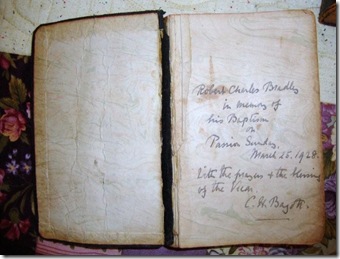 Robert Charles Bradley
in memory of
his Baptism
on
Passion Sunday,
March 25. 1928.
With the prayers & the blessing
of the Vicar.
C. H. Bagott.